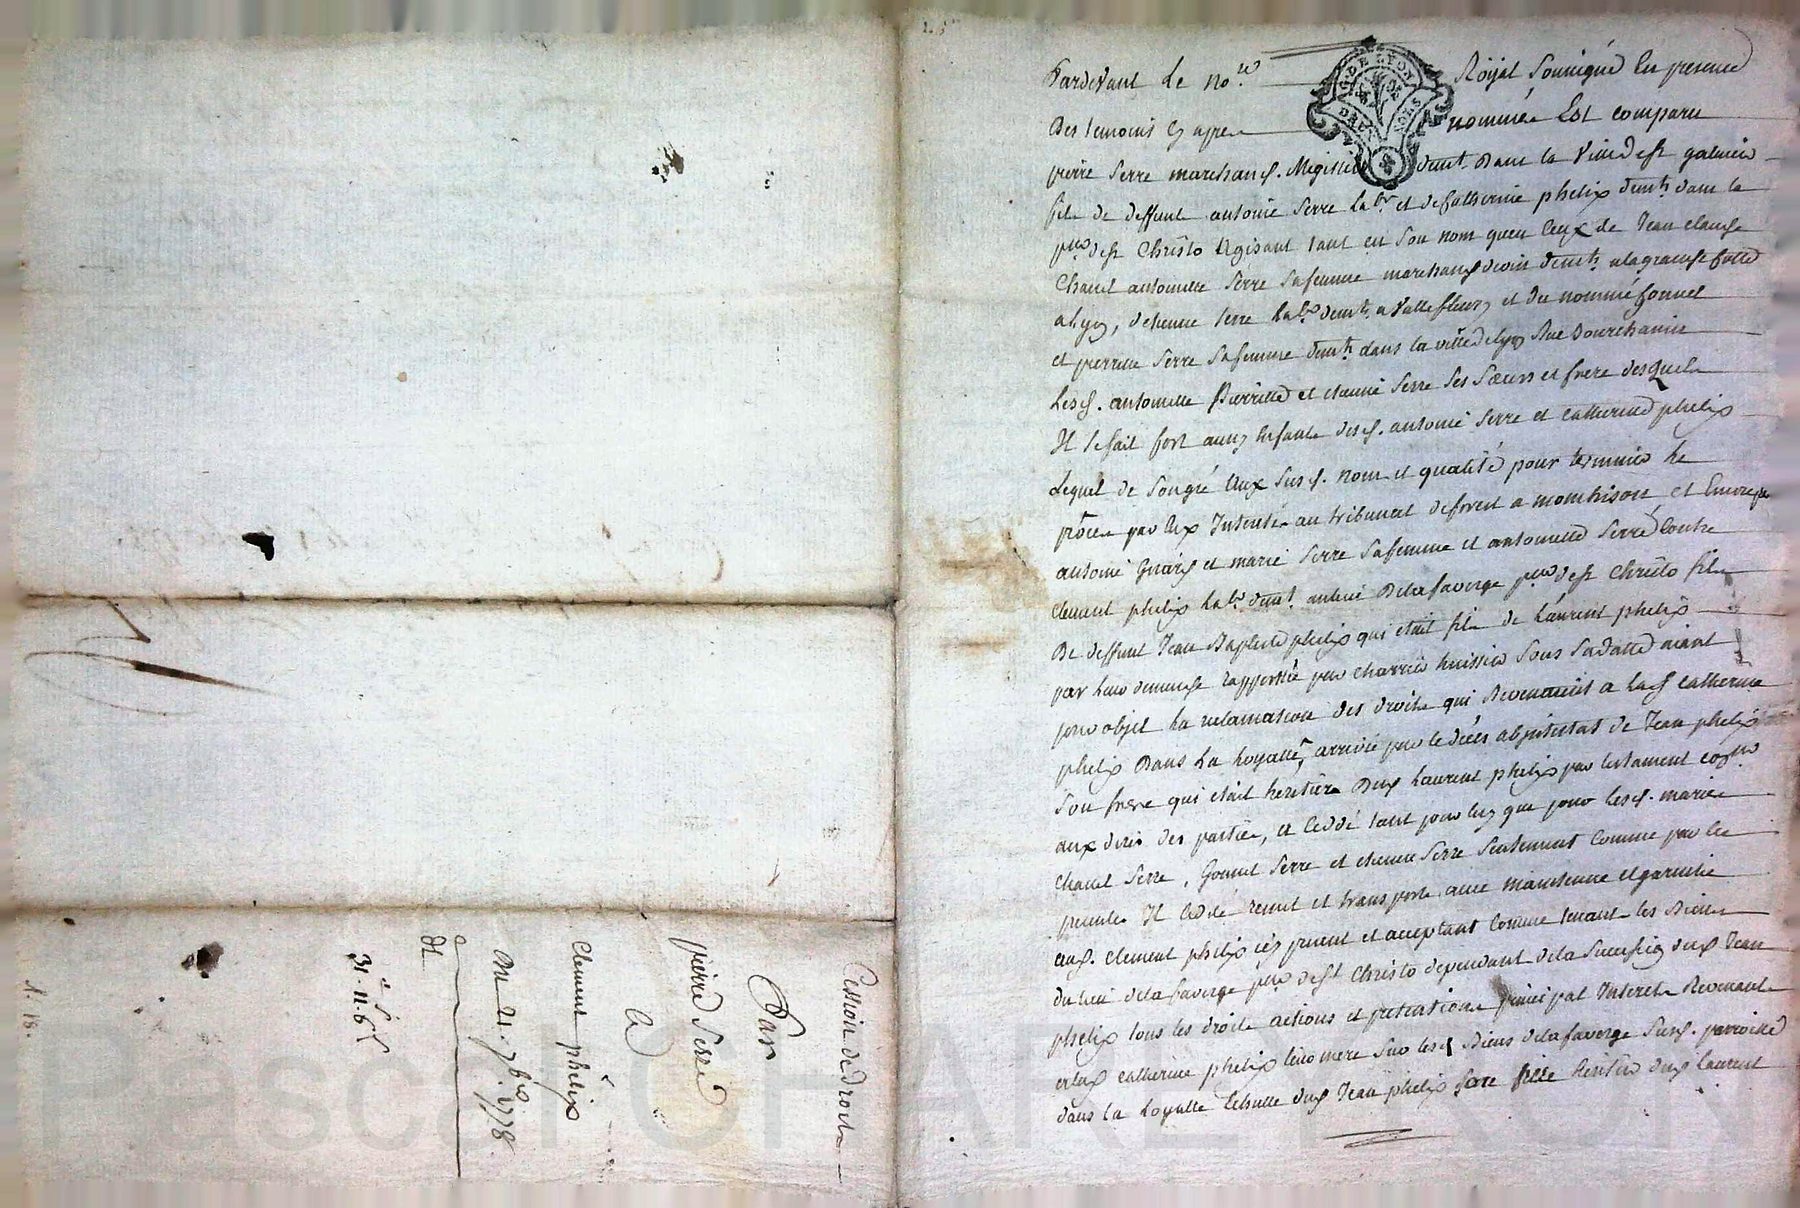 Pardevant Le no.re Royal Soussigné En presence
Des temoins Cy apres nommés Est comparu
pierre Serre marchand. Megissier demt. Dans la Ville de st galmier
fils de deffunt antoine Serre lab.r et de Catherine phelix demts dans la
p.sse de st Christo Agissant tant en Son nom qu'en Ceux de Jean claude
Chanel antoinette Serre Safemme marchands demts a la
a Lyon, detienne serre lab.r demt. a Vallefleury et du nommé gonnet
et pierrette Serre Safemme demts dans la ville de Lyon Rue Bourchanin
Lesd. antoinette Pierrette et etienne Serre Ses Sœurs et frere desquels
Il Se fait fort aussy Enfants desd. antoine Serre et Catherine phelix
Lequel de Son gré Aux Susd. noms et qualité pour terminer Le
procès par Eux Intenté au tribunal de forest a Montbrison et
antoine et marie Serre Safemme et antoinette Serre Contre
clement phelix lab.r demt. au lieu De la faverge p.sse de st Christo fils
De deffunt Jean Baptiste phelix qui etait fils de Laurent phelix
par Leur demande rapportée par Charrier huissier Sous Sa datte aiant
pour objet La reclamation des droits qui Revenaient a Lad Catherine
phelix Dans La Loyalle arrivée par le décès abintestat de Jean phelix
Son frere qui etait heritier Dud Laurent phelix par testament
aux dires des parties, et Cedé tant pour luy que pour lesd. mariés
Chanel Serre, Gonnet Serre et etienne Serre Seulement Comme par les
presentes Il Cede remet et transporte avec maintenue et garantie
aud. clement phelix icy present et acceptant Comme tenant les Biens
du lieu de la faverge p.sse de St Christo dependant de la Succession dud Jean
phelix tous les droits actions et pretentions principal Interets Revenants
Catherine phelix leur mere Sur lesd Biens de la faverge Susd. parroisse
dans la Loyalle Echutte dud Jean phelix heritier dud Laurent
Cession de Droits
Par
pierre Serre
A
Clement phelix
Du 21. 7bre 1778
31-11-6
Pascal CHARETRON